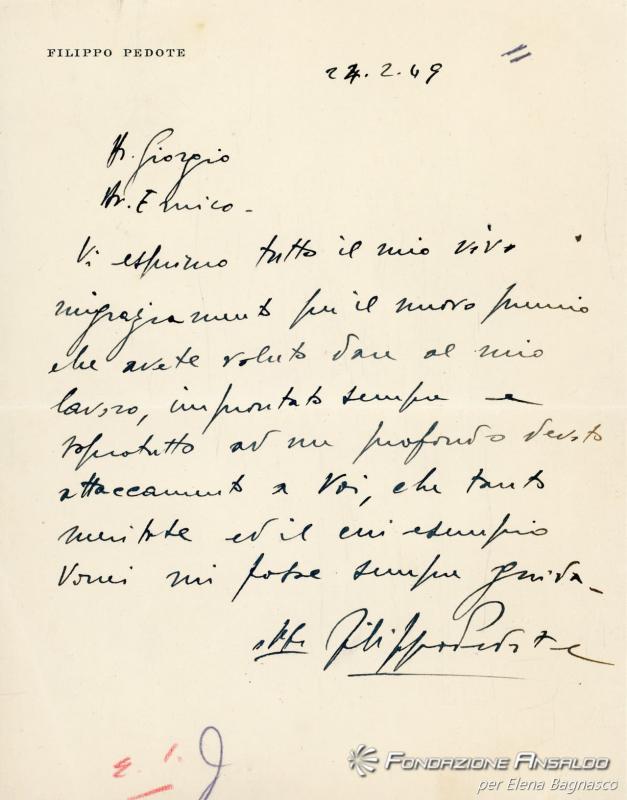 FILIPPO PEDOTE
24.2.49
Dr. Giorgio
Dr. Enrico -
Vi esprimo tutto il mio vivo
ringraziamento per il nuovo premio
che avete voluto dare al mio
lavoro, improntato sempre e
soprotutto ad un profondo devoto
attaccamento a Voi, che tanto
meritate ed il cui esempio
Vorrei mi fosse sempre guida -
Filippo Pedote
FONDAZIONE ANSALDO
per Elena Bagnasco